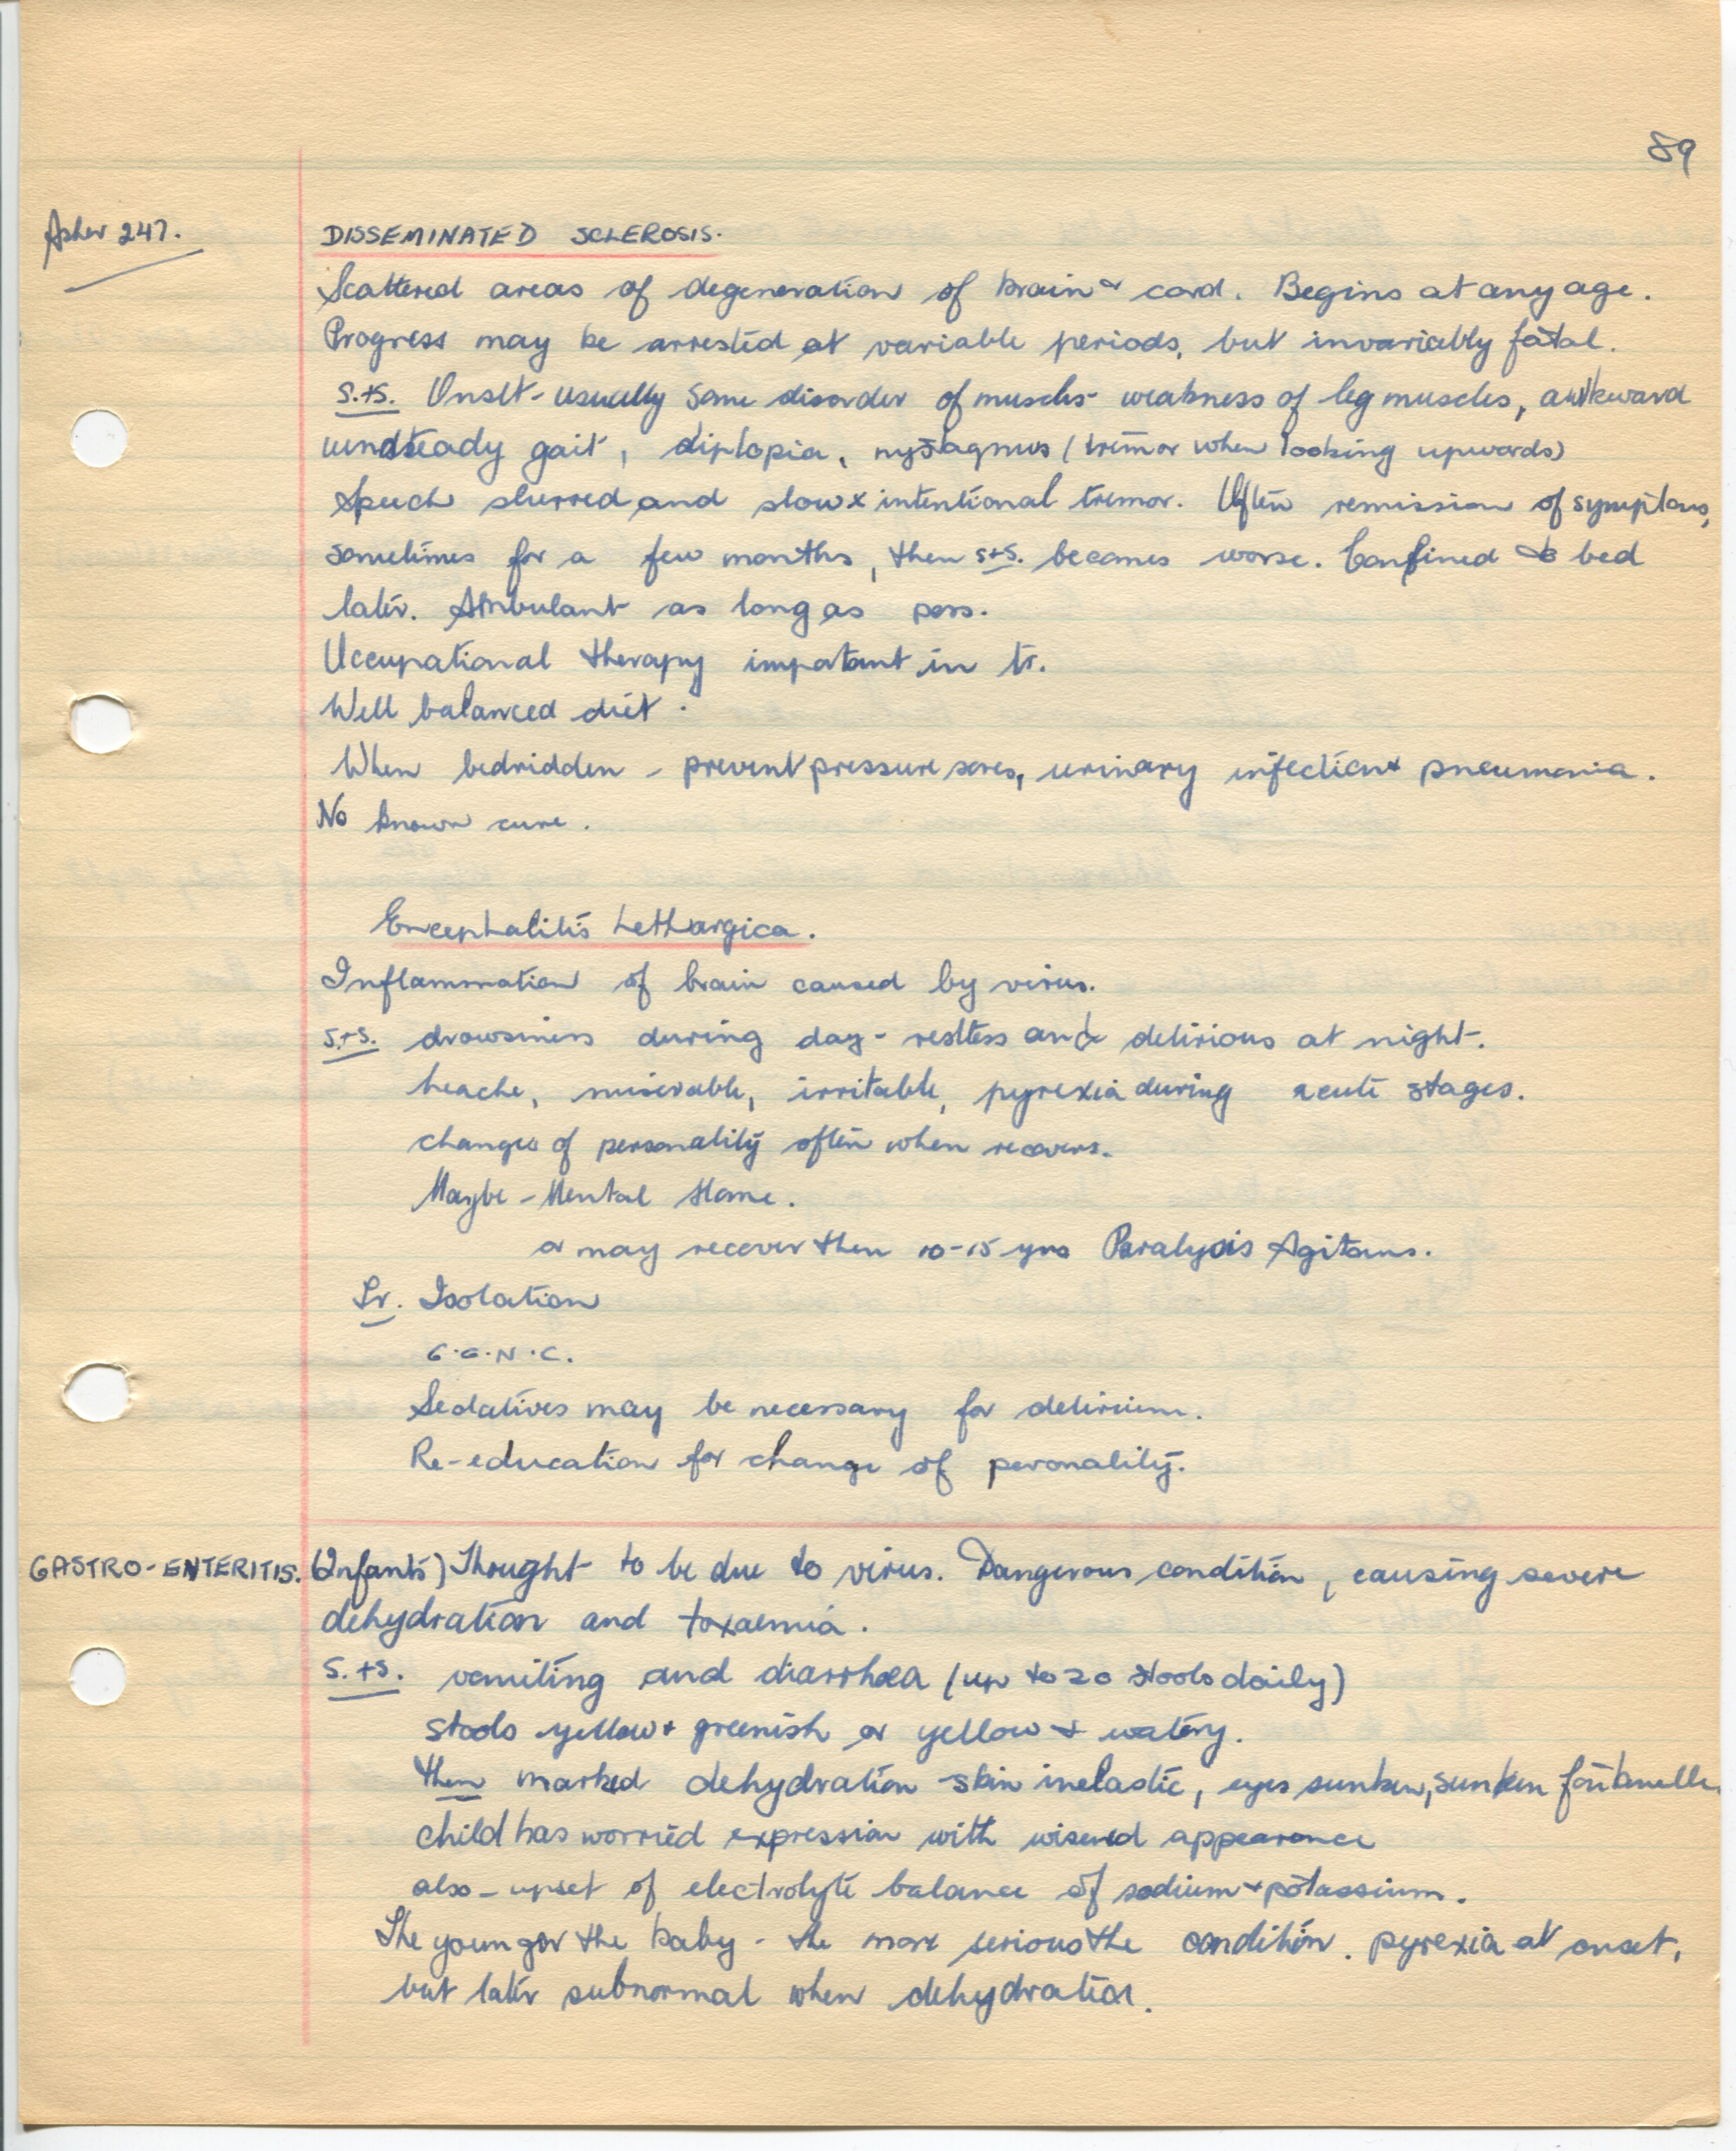 89
Asher 247.
DISSEMINATED SCLEROSIS.
Scattered areas of degeneration of brain & cord. Begins at any age.
Progress may be arrested at variable periods, but invariably fatal.
S.+S. Onset - usually some disorder of muscles - weakness of leg muscles, awkward
unsteady gait, diplopia, nystagmus (tremor when looking upwards)
Speech slurred and slow & intentional tremor. Often remission of symptoms,
sometimes for a few months, then s+s. becomes worse. Confined to bed
later. Ambulant as long as poss.
Occupational therapy impotant in tr.
Well balanced diet.
When bedridden - prevent pressure sores, urinary infection & pneumonia.
No known cure.
Encephalitis Lethargica.
Inflammation of brain caused by virus.
S.+S. drowsiness during day - restless and delirious at night.
heache, miserable, irritable, pyrexia during acute stages.
changes of personality often when recovers.
Maybe - Mental Home.
or may recover then 10-15 yrs Paralysis Agitans.
Tr. Isolation
G.G.N.C.
Sedatives may be necessary for delirium.
Re-education for change of personality.
GASTRO-ENTERITIS. (Infants) Thought to be due to virus. Dangerous condition, causing severe
dehydration and toxaemia.
S.+S. vomiting and diarrhoea (up to 20 stools daily)
stools yellow + greenish or yellow + watery.
then marked dehydration - skin inelastic, eyes sunken, sunken fontanelle.
child has worried expression with wisened appearance
also - upset of electrolyte balance of sodium + potassium.
The younger the baby - the more serious the condition. pyrexia at onset,
but later subnormal when dehydration.